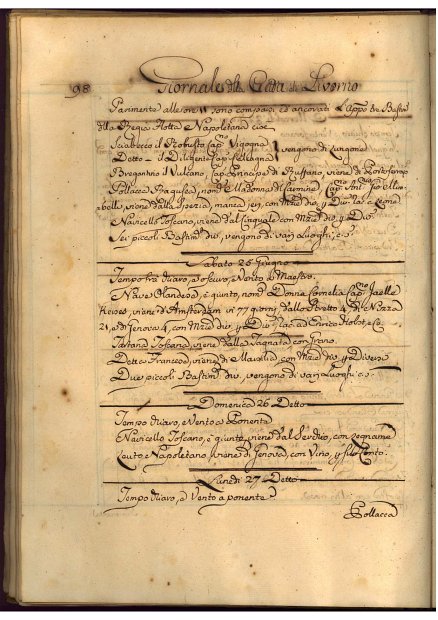 98 Giornale della Città di Livorno
Parimente alle ore 11 sono comparsi, ed ancorati Lappo tre Bastim.
della Regia Flotta Napoletana cioè
Sciabecco il Robusto Cap.no Vigogna
Detto il Diligente Cap. vengono di Longone
Brigantino il Vulcano, Cap. Principe di Ruffano, viene di Portoferraio
Pollacca Ragusea, nom. Madonna del Carmine, Cap.no Ant.
viene dalla Spezia, manca jeri, con Mer. div.
Navicello Toscano, viene dal Cinquale con Mer. div. p. Div.
Sei piccoli Bastim. div. vengono di varj Luoghi &c.
Sabato 25 Giugno
Tempo tra chiaro, e oscuro, Vento a Maestro.
Nave Olandese, è giunta, nom. Donna Cornelia Cap.no Jaelle
Reises, viene di Amsterdam in 77 giorni, dallo Stretto 4, di Nizza
21, e di Genova 4, con Mer. div. p. Div. rac. ad Enrico & Co.
Tartana Toscana, viene dalla Tagnata con Grano.
Detta Francese, viene di Marsilia con Mer. div. p. Diversi
Due piccoli Bastim. div. vengono di varj Luoghi &c.
Domenica 26 Detto
Tempo chiaro, e Vento a Ponente
Navicello Toscano, è giunto, viene dal Serchio, con Legname
Leuto Napoletano, viene di Genova, con Vino, p. suo Conto.
Lunedì 27 Detto
Tempo chiaro, e Vento a ponente.
Pollacca